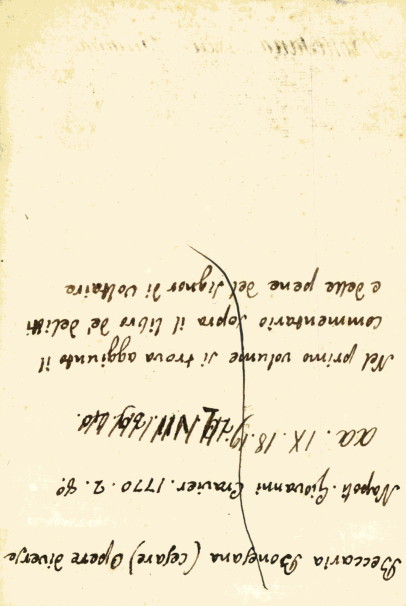 Beccaria Bonesana (Cesare) Opere diverse
Napoli. Giovanni Gravier. 1770. 2. 8º.
aa. IX. 18. 19.
Nel primo volume si trova aggiunto il
commentario sopra il libro de' delitti
e delle pene del signor di Voltaire